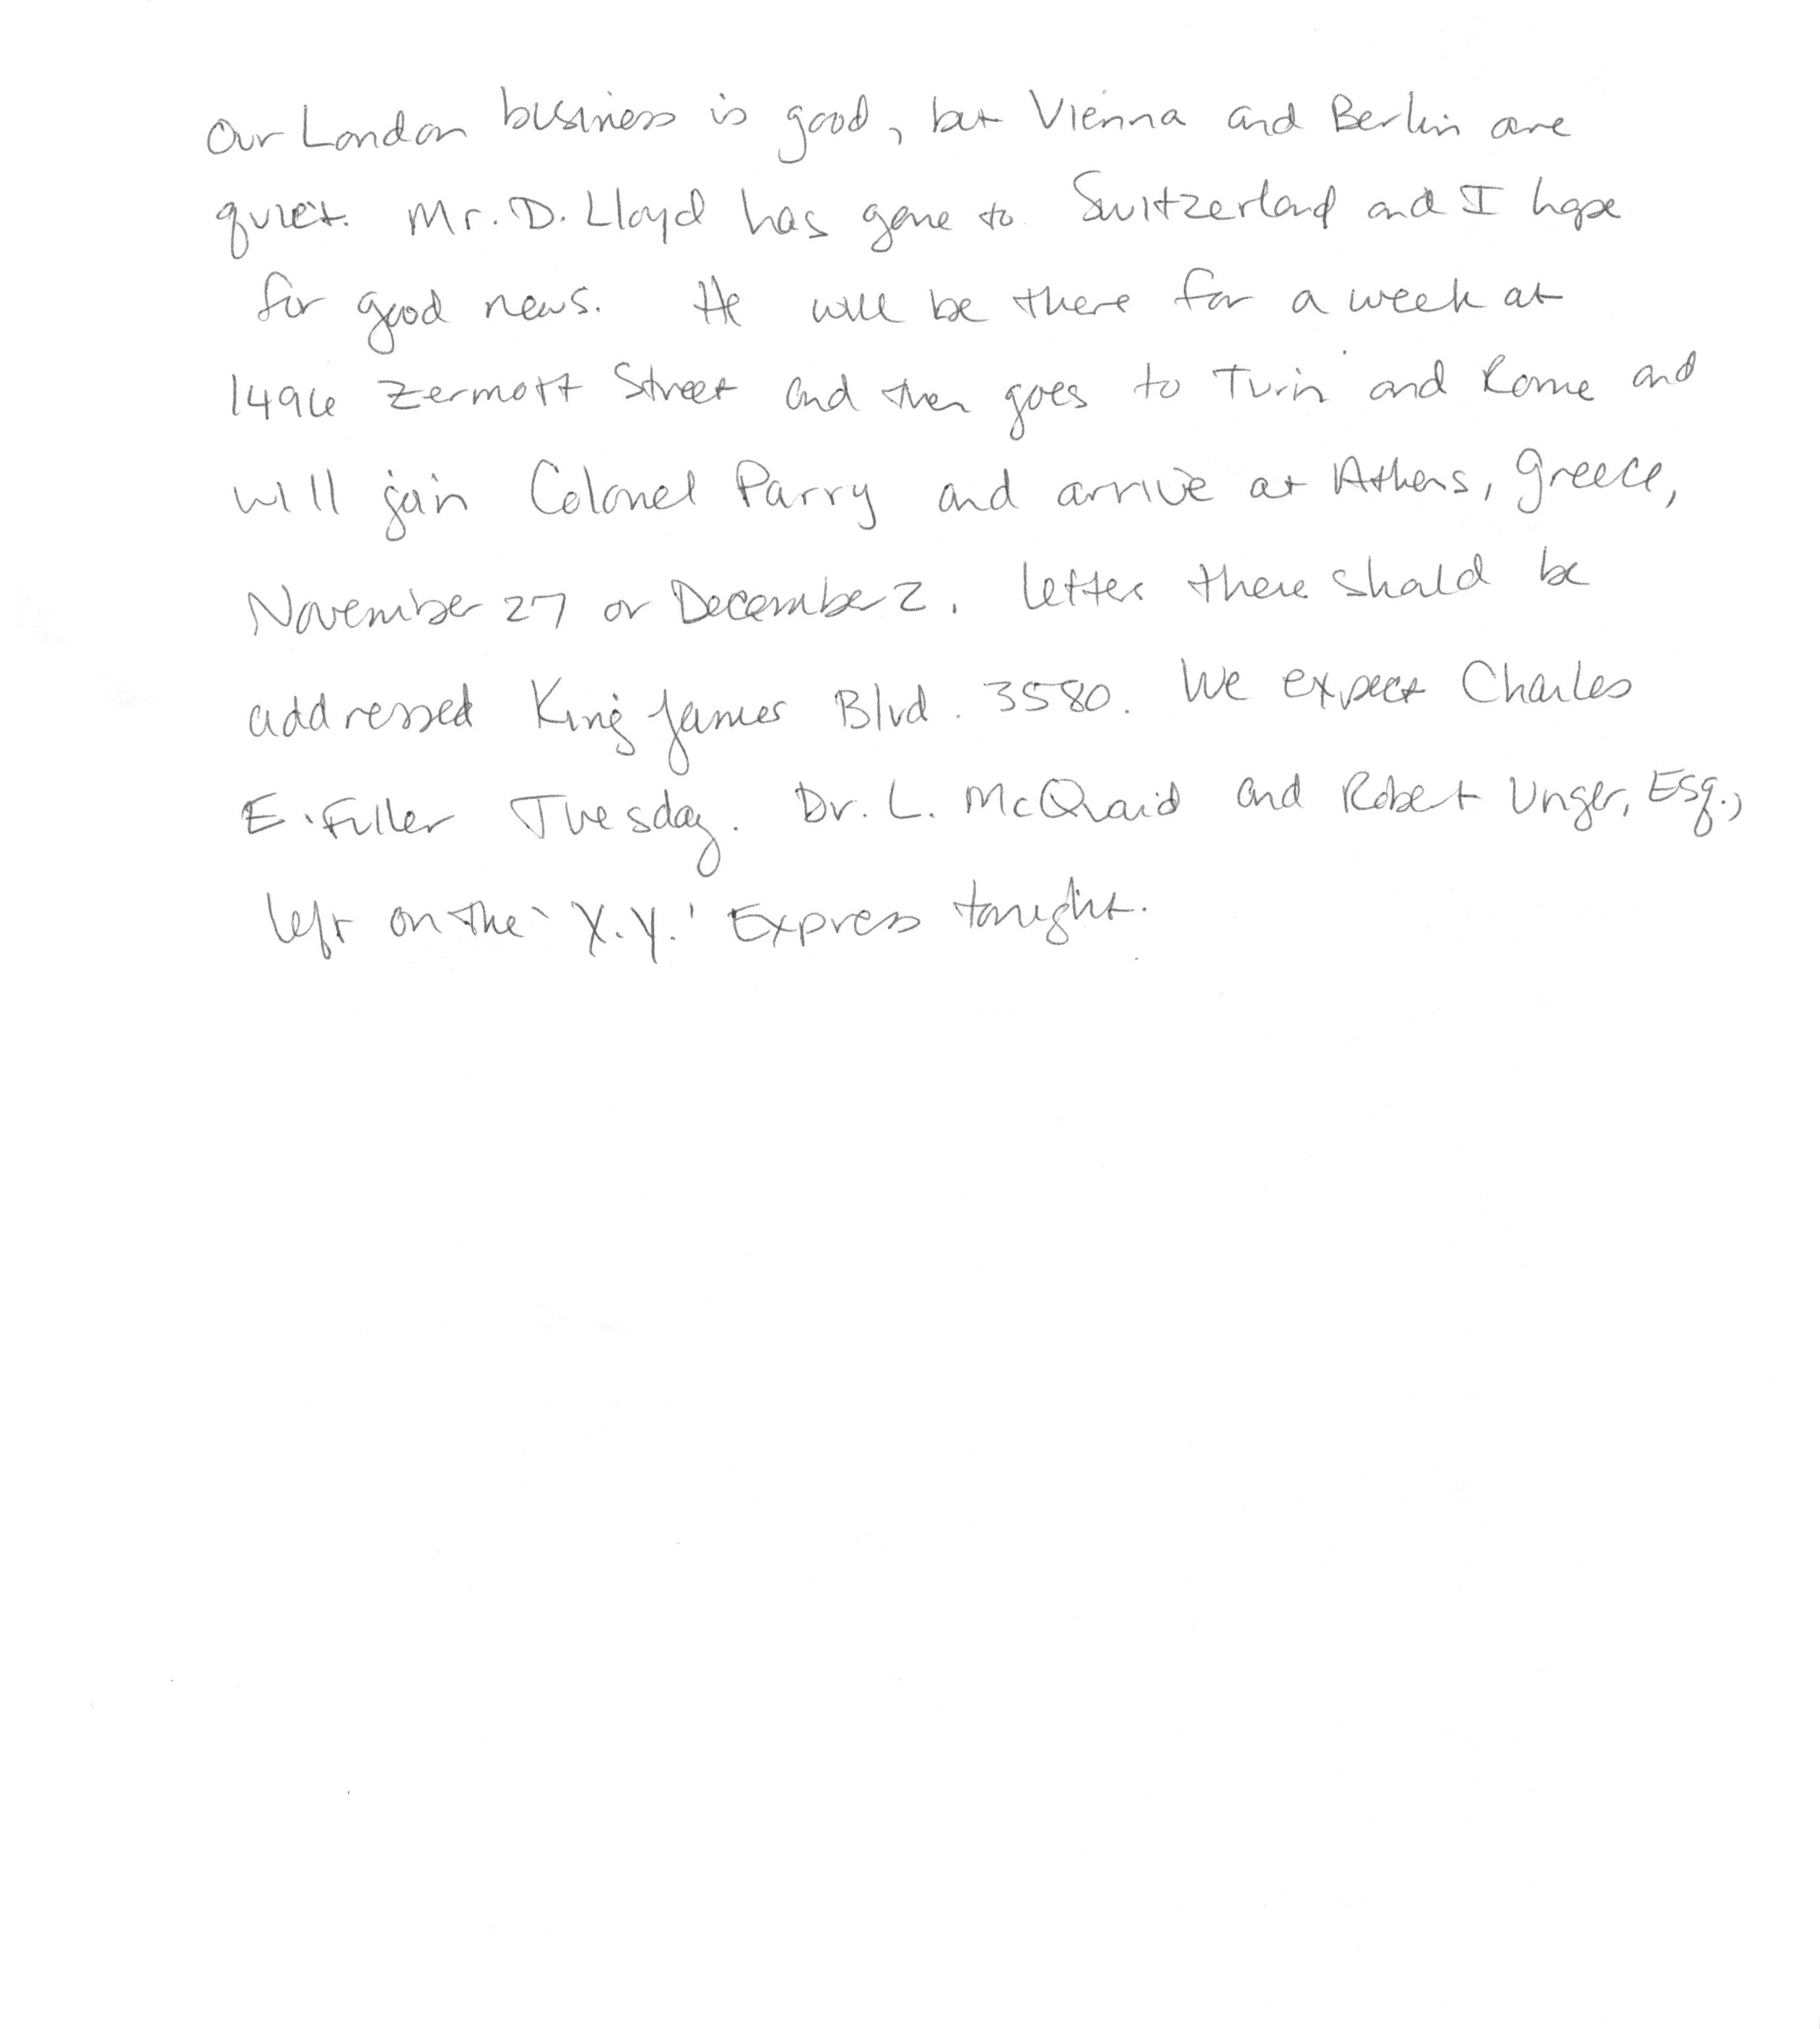 Our London business is good, but Vienna and Berlin are
quiet. Mr. D. Lloyd has gone to Switzerland and I hope
for good news. He will be there for a week at
1496 Zermott Street and then goes to Turin and Rome and
will join Colonel Parry and arrive at Athens, Greece,
November 27 or December 2. Letters there should be
addressed King James Blvd. 3580. We expect Charles
E. Fuller Tuesday. Dr. L. McQuaid and Robert Unger, Esq.,
left on the 'X.Y.' Express tonight.